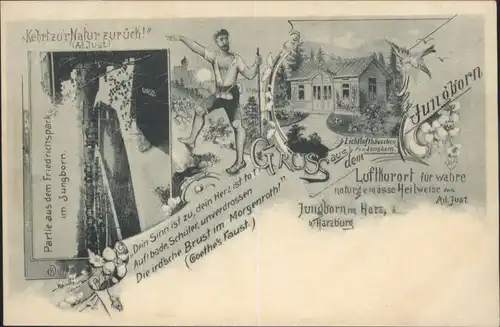 „Kehrt zur Natur zurück!"
(Ad. Just)
Partie aus dem Friedrichspark
im Jungborn.
„Dein Sinn ist zu, dein Herz ist tot,
Auf! bade, Schüler, unverdrossen
Die ird'sche Brust im Morgenroth!"
(Goethe's Faust.)
Gruss aus dem
Jungborn
Lichtlufthäuschen
Jungborn.
Luftkurort für wahre
naturgemässe Heilweise von
Ad. Just.
Jungborn im Harz,
Harzburg